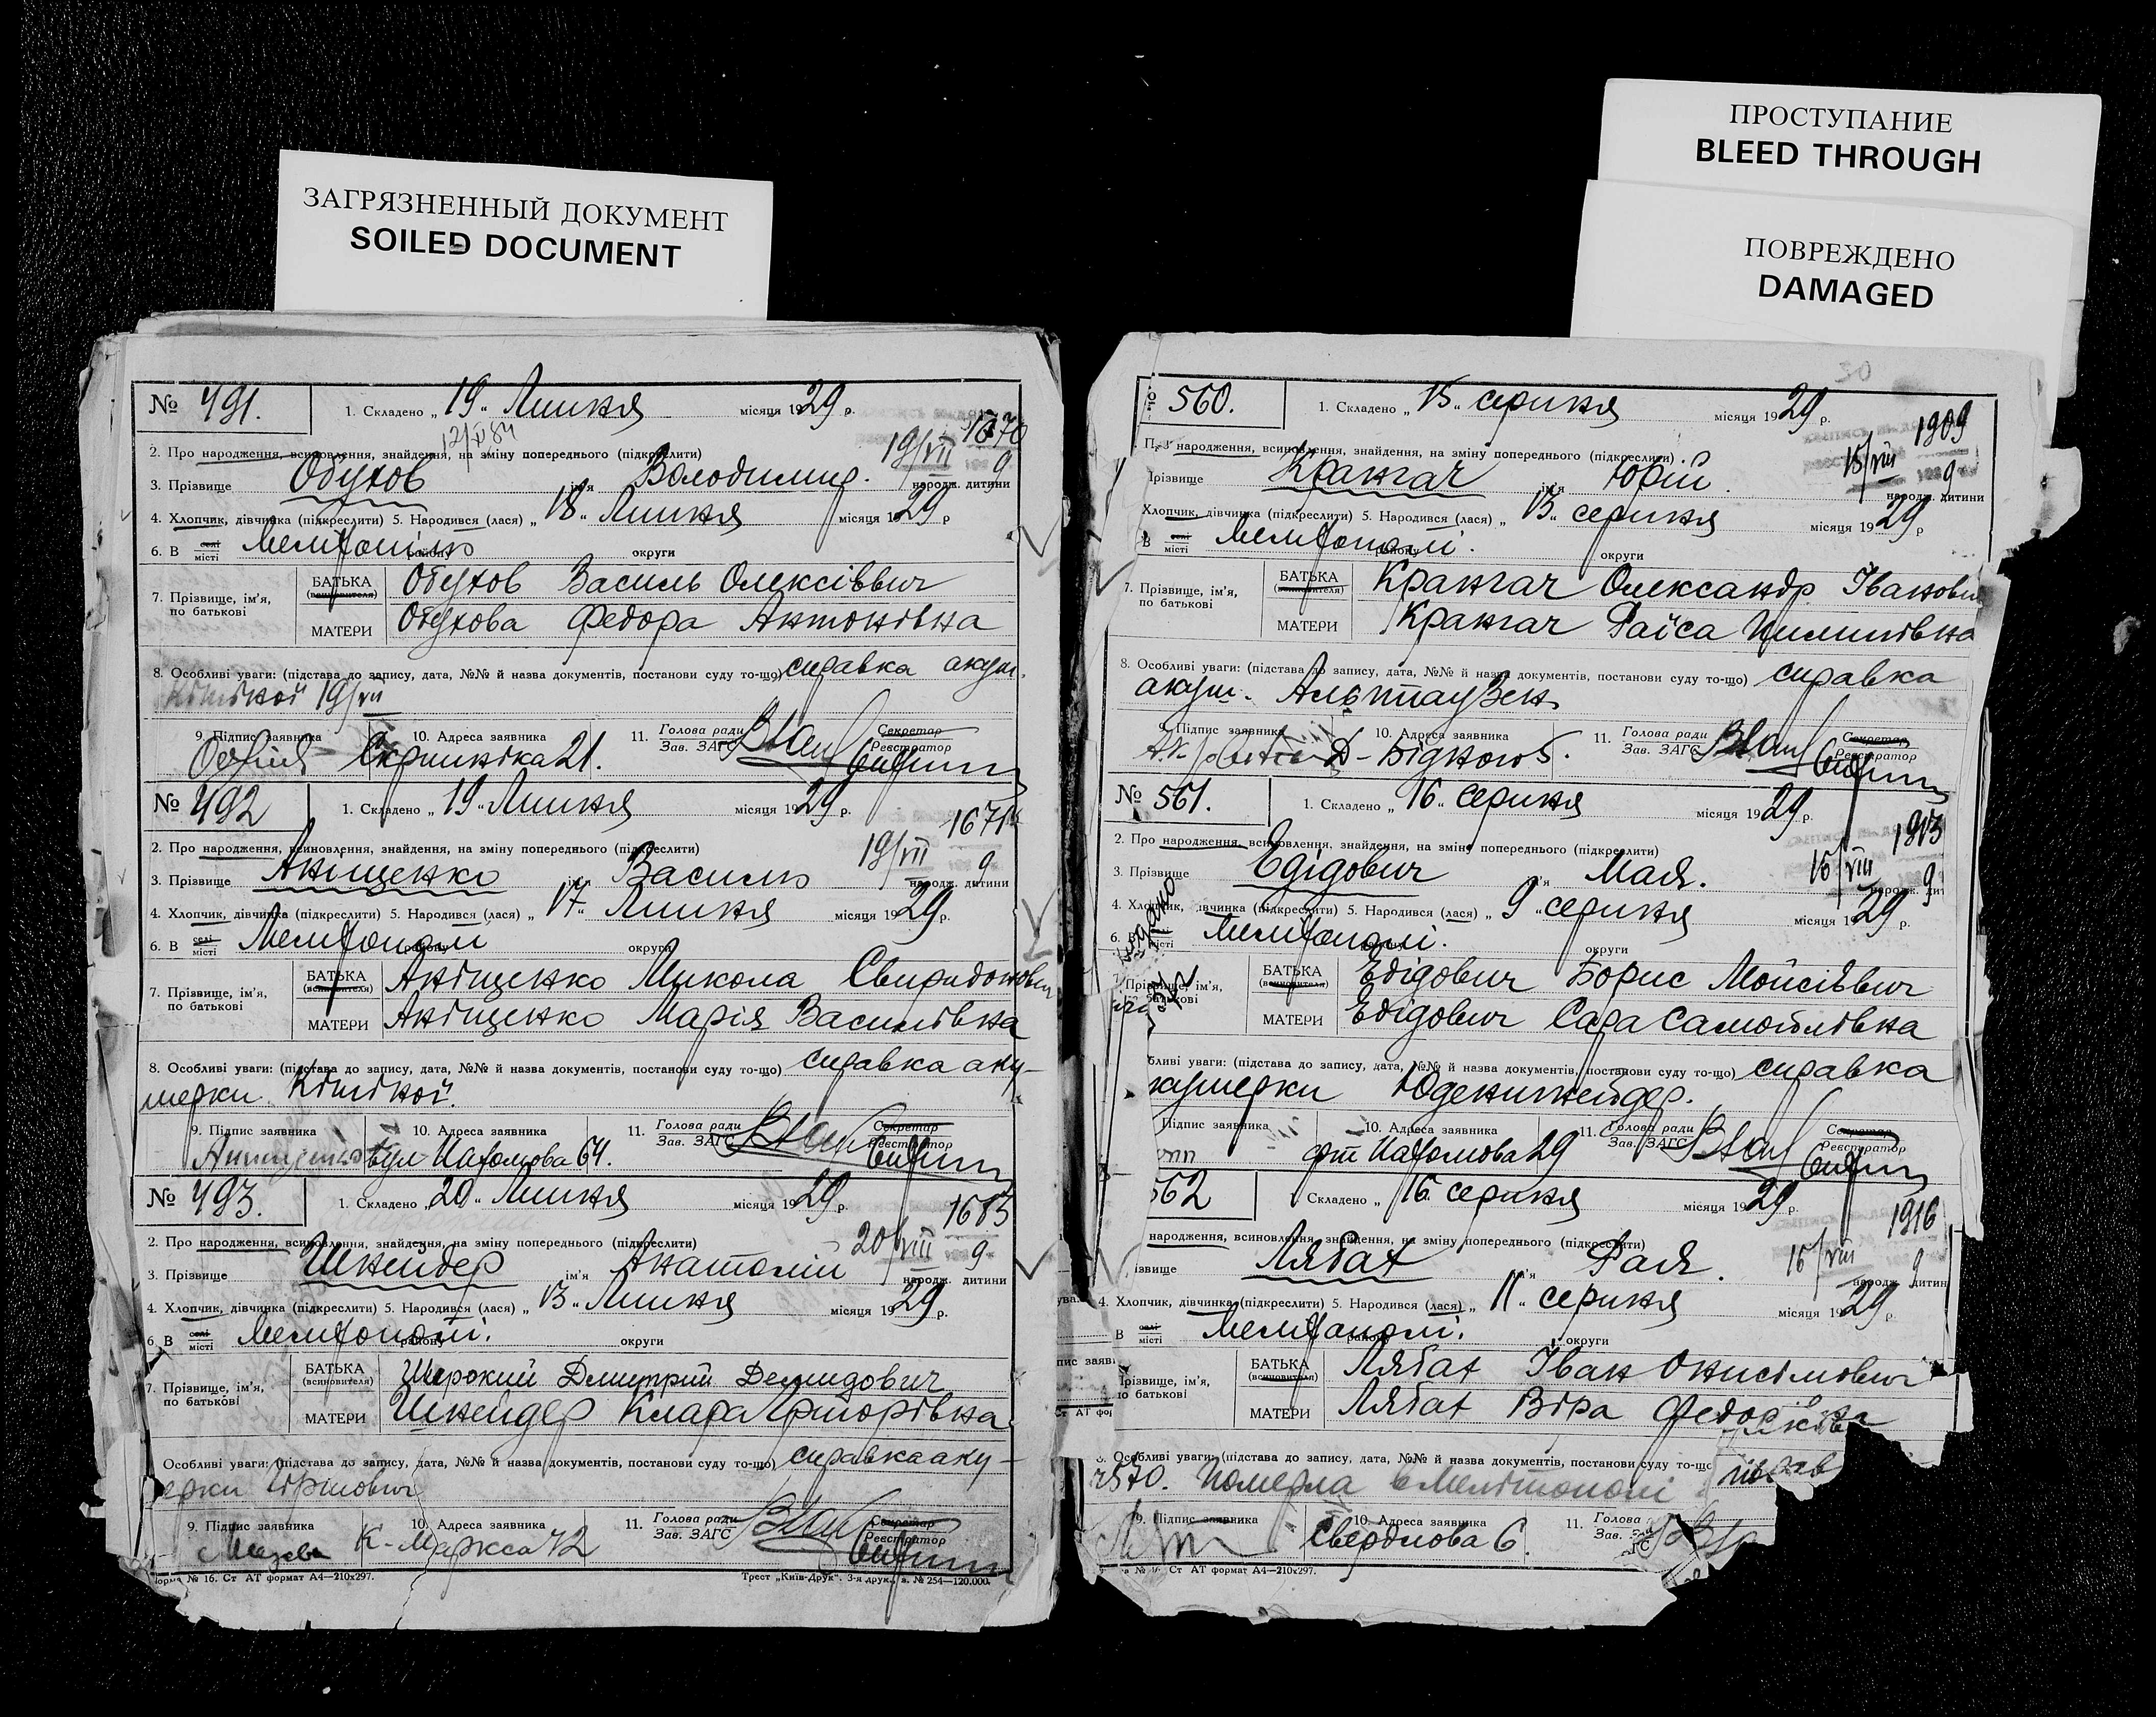 ЗАГРЯЗНЕННЫЙ ДОКУМЕНТ
SOILED DOCUMENT
ПРОСТУПАНИЕ
BLEED THROUGH
ПОВРЕЖДЕНО
DAMAGED
№ 491. 1. Складено „19“ Липня місяця 1929 р.
1670
2. Про народження, всиновлення, знайдення, на зміну попереднього (підкреслити) 19/VII 9
3. Прізвище Обухов ім'я Володимир. народж. дитини
4. Хлопчик, дівчинка (підкреслити) 5. Народився (лася) „18“ Липня місяця 1929 р
6. В селі місті Мелітопілю району округи
7. Прізвище, ім'я, по батькові БАТЬКА (всиновителя) Обухов Василь Олексіввич
МАТЕРИ Обухова Федора Антонівна
8. Особливі уваги: (підстава до запису, дата, №№ й назва документів, постанови суду то-що) справка акуш.
19/VII
9. Підпис заявника 10. Адреса заявника Скрипніка 21. 11. Голова ради Зав. ЗАГС Секретар Реєстратор
№ 492 1. Складено „19“ Липня місяця 1929 р.
1671
2. Про народження, всиновлення, знайдення, на зміну попереднього (підкреслити) 19/VII 9
3. Прізвище Аніщенко ім'я Василь народж. дитини
4. Хлопчик, дівчинка (підкреслити) 5. Народився (лася) „17“ Липня місяця 1929 р.
6. В селі місті Мелітополі району округи
7. Прізвище, ім'я, по батькові БАТЬКА (всиновителя) Аніщенко Микола Свиридонович
МАТЕРИ Аніщенко Марія Василівна
8. Особливі уваги: (підстава до запису, дата, №№ й назва документів, постанови суду то-що) справка аку-
шерки
9. Підпис заявника 10. Адреса заявника вул 64. 11. Голова ради Зав. ЗАГС Секретар Реєстратор
№ 493. 1. Складено „20“ Липня місяця 1929 р.
1683
2. Про народження, всиновлення, знайдення, на зміну попереднього (підкреслити) 20/VIII 9
3. Прізвище Шнейдер ім'я Анатолій народж. дитини
4. Хлопчик, дівчинка (підкреслити) 5. Народився (лася) „13“ Липня місяця 1929 р.
6. В селі місті Мелітополі. району округи
7. Прізвище, ім'я, по батькові БАТЬКА (всиновителя) Широкий Дмитрий Демидович
МАТЕРИ Шнейдер Клара
Особливі уваги: (підстава до запису, дата, №№ й назва документів, постанови суду то-що) справка аку-
ерки
9. Підпис заявника 10. Адреса заявника К-Маркса 72 11. Голова ради Зав. ЗАГС Секретар Реєстратор
№ 16. Ст АТ формат А4—210х297. Трест „Київ-Друк“. 3-я друк., з. № 254—120.000.
560. 1. Складено „15“ серпня місяця 1929 р.
1909
народження, всиновлення, знайдення, на зміну попереднього (підкреслити) 15/VIII 9
Прізвище Крангач ім'я Юрій. народж. дитини
Хлопчик, дівчинка (підкреслити) 5. Народився (лася) „13“ серпня місяця 1929 р
В селі місті Мелітополі. району округи
7. Прізвище, ім'я, по батькові БАТЬКА (всиновителя) Крангач Олександр Іванович
МАТЕРИ Крангач Раїса Пилипівна
8. Особливі уваги: (підстава до запису, дата, №№ й назва документів, постанови суду то-що) справка
акуш. Альтгаузен
9. Підпис заявника 10. Адреса заявника Д-Бідного 5. 11. Голова ради Зав. ЗАГС Секретар Реєстратор
№ 561. 1. Складено „16“ серпня місяця 1929 р.
1913
2. Про народження, всиновлення, знайдення, на зміну попереднього (підкреслити) 16/VIII 9
3. Прізвище Едідович ім'я Мая. народж.
4. Хлопчик, дівчинка (підкреслити) 5. Народився (лася) „9“ серпня місяця 1929 р.
6. В місті Мелітополі. району округи
Прізвище, ім'я, по батькові БАТЬКА (всиновителя) Едідович Борис Мойсіввич
МАТЕРИ Едідович Сара Самойлівна
Особливі уваги: (підстава до запису, дата, №№ й назва документів, постанови суду то-що) справка
кушерки
Підпис заявника 10. Адреса заявника 29 11. Голова ради Зав. ЗАГС Секретар Реєстратор
562 1. Складено „16“ серпня місяця 1929 р.
1916
народження, всиновлення, знайдення, на зміну попереднього (підкреслити) 16/VIII 9
ізвище Лябах ім'я Рая. народж. дитин
4. Хлопчик, дівчинка (підкреслити) 5. Народився (лася) „11“ серпня місяця 1929 р.
В селі місті Мелітополі. району округи
Прізвище, ім'я, по батькові БАТЬКА (всиновителя) Лябах Іван Онисімович
МАТЕРИ Лябах Віра
Особливі уваги: (підстава до запису, дата, №№ й назва документів, постанови суду то-що
Померла в Мелітополі
9. Підпис заявника 10. Адреса заявника Свердлова 6. 11. Голова Зав. ЗАГС
Ст АТ формат А4—210х297.